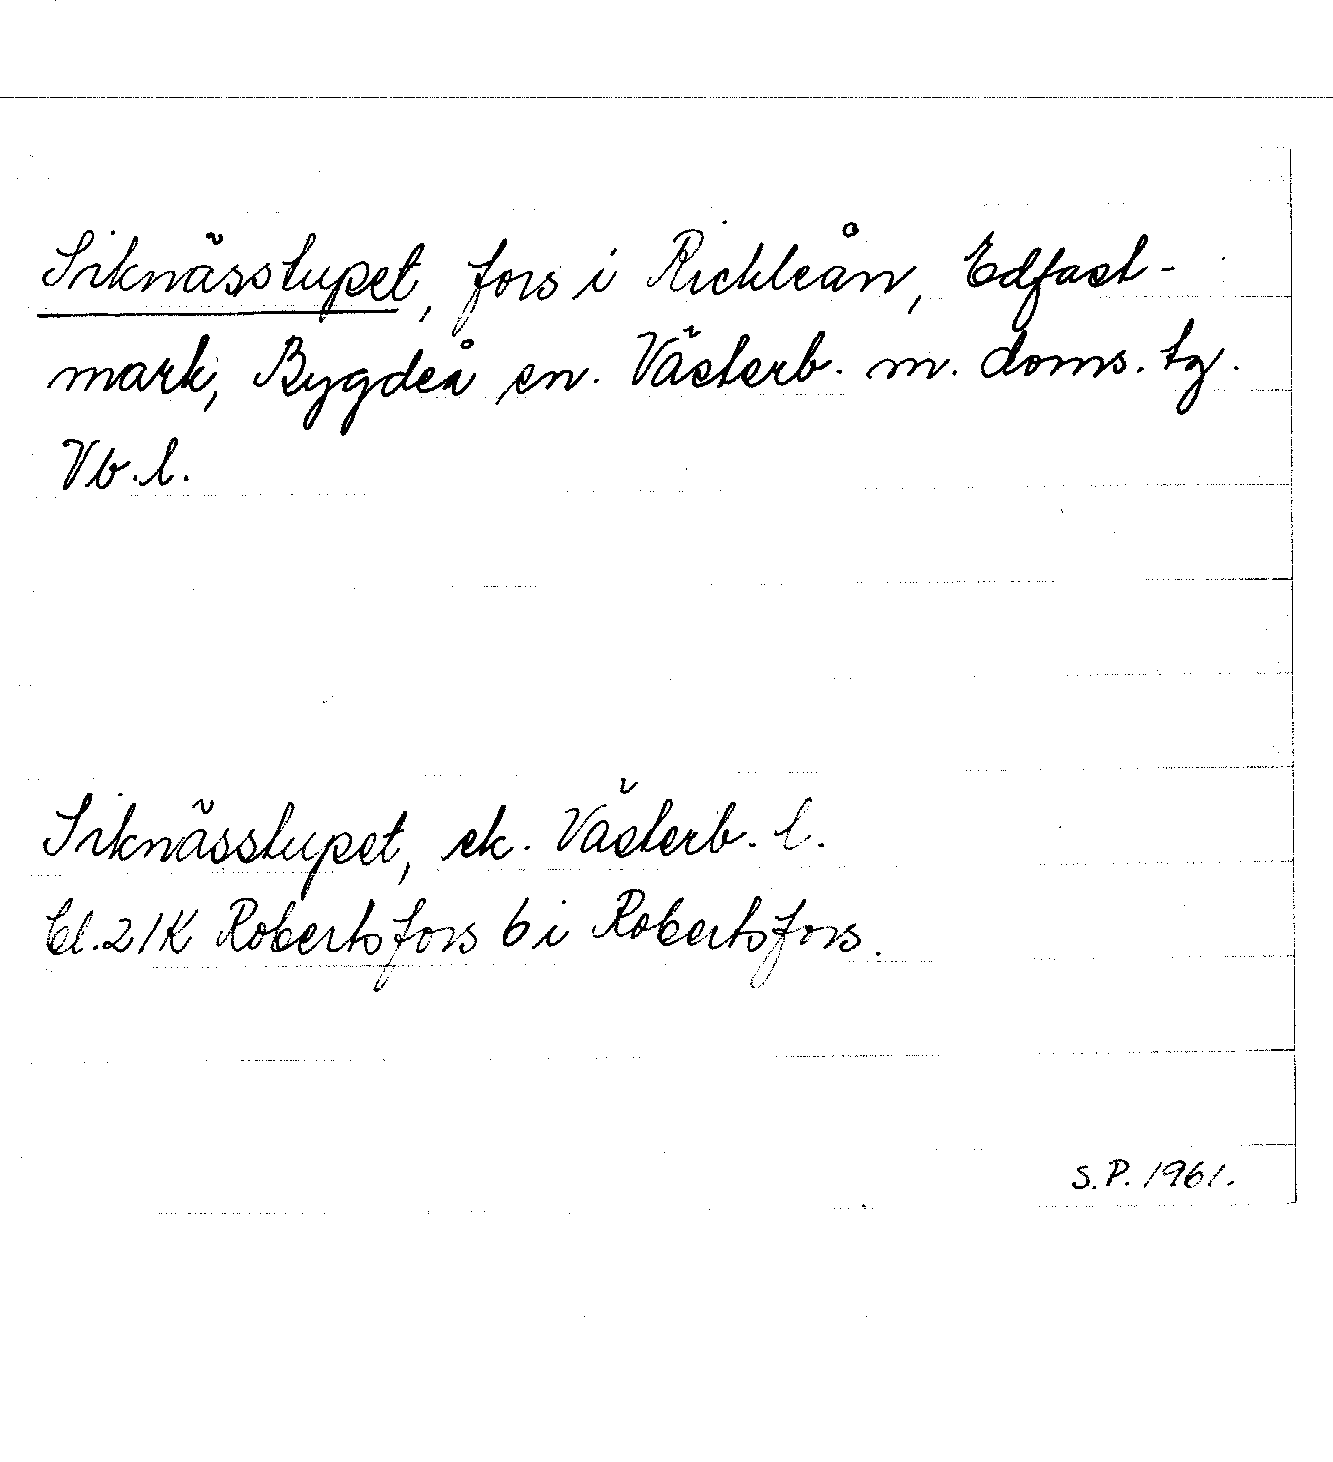 Siknässtupet, fors i Rickleån, Edfast-
mark, Bygdeå sn. Västerb. m. doms. tg.
Vb. l.
Siknässtupet, ek. Västerb. l.
bl. 21K Robertsfors b i Robertsfors.
S.P. 1961.